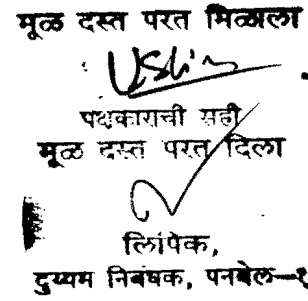 मूळ दस्त परत मिळाला
पक्षकाराची सही
मूळ दस्त परत दिला
लिपिक,
दुय्यम निबंधक, पनवेल—१